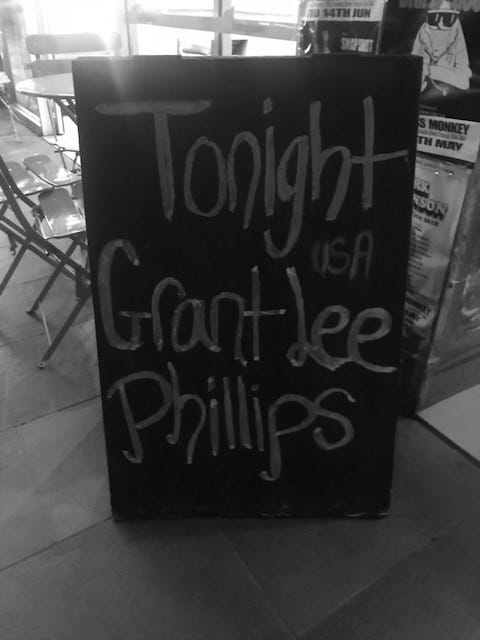 Tonight
USA
Grant Lee
Phillips
14TH JUN
S MONKEY
TH MAY
NSON